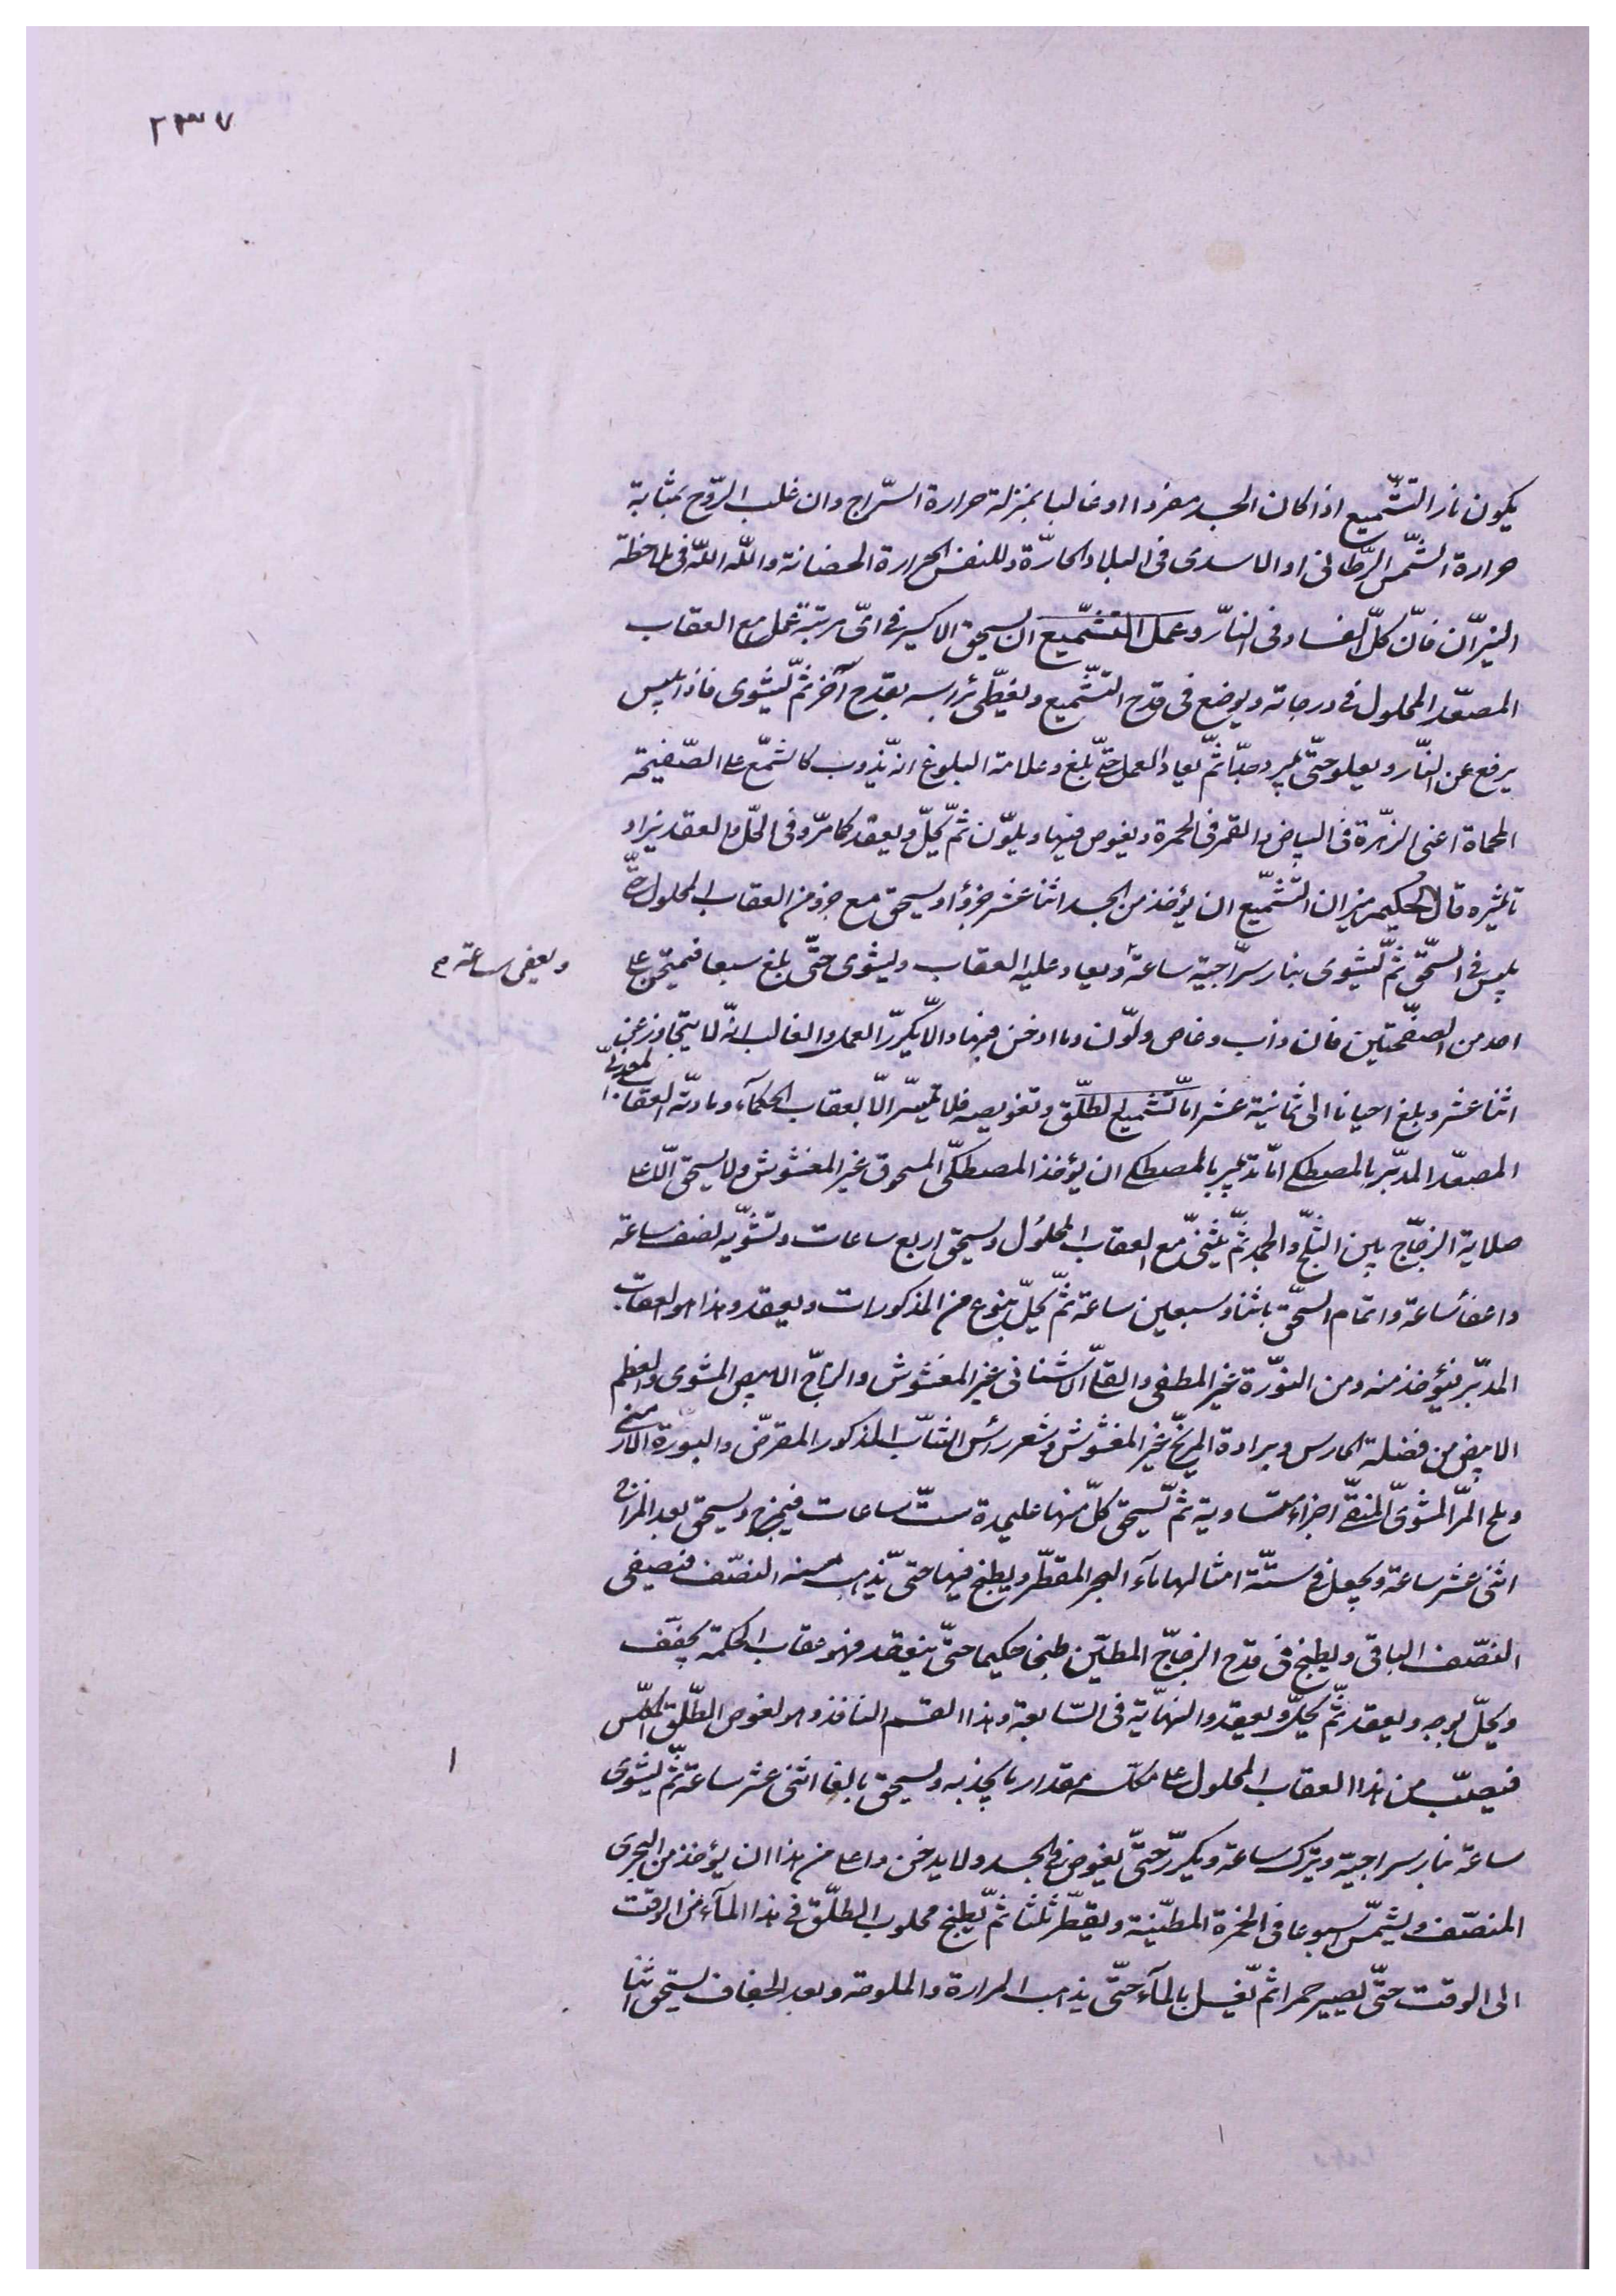 ٢٣٧
يكون نار التشميع اذا كان الجسد مفردا او غالبا بمنزلة حرارة السراج وان غلب الروح بمثابة
حرارة الشمس السرطانى او الاسدى فى البلاد الحارة وللنفس الحرارة الحضانة والله الله فى ملاحظة
النيران فان كل الفساد فى النار وعمل التشميع ان يسحق الاكسير فى اى مرتبة عمل مع العقاب
المصعد المحلول فى درجاته ويوضع فى قدح التشميع ويغطى راسه بقدح آخر ثم يشوى فاذا يبس
يرفع عن النار ويعلو حتى يبرد جدا ثم يعاد العمل حتى يبلغ وعلامة البلوغ انه يذوب كالشمع على الصفيحة
المحماة اعنى الزهرة فى البياض والقمر فى الحمرة ويغوص فيها ويلون ثم يحل ويعقد كما مر وفى الحل والعقد يزداد
تاثيره قال الحكيم ميزان التشميع ان يؤخذ من الجسد اثنا عشر جزؤا ويسحق مع جزء من العقاب المحلول حتى
يلبس فى السحق ثم يشوى بنار سراجية ساعة ويعاد عليه العقاب ويشوى حتى بلغ سبعا فيمتحن على
ويعفى ساعة م
احد من الصفحتين فان ذاب وغاص ولون وما ادخن فبها والا يكرر العمل والغالب انه لا يتجاوز عن
اثنا عشر وبلغ احيانا الى ثمانية عشر اما تشميع الطلق وتغويصه فلا تيسر الا بعقاب الحكماء ومادته العقاب المعدنى
المصعد المدبر بالمصطكى اما تدبير بالمصطكى ان يؤخذ المصطكى المسحوق غير المغشوش ولا يسحق الا على
صلاية الزجاج بين الثلج والجمد ثم يثنى مع العقاب المحلول ويسحق اربع ساعات وتشويه نصف ساعة
واعفا ساعة واتمام السحق باثنا وسبعين ساعة ثم يحل بنوع من المذكورات ويعقد وهذا هو العقاب
المدبر فيؤخذ منه ومن النورة غير المطفى والقلى الاشنانى غير المغشوش والزاج الابيض المشوى والعظم
الابيض من فضلة الحارس وبرادة المريخ غير المغشوش وشعر رأس الشاب المذكور المقرض والبورة الارمنى
وملح المر المشوى المنقى اجزاء متساوية ثم يسحق كل منها عليحدة ست ساعات فيمزج ويسحق بعد المزاج
اثنى عشر ساعة ويجعل فى ستة امثالها ماء البحر المقطر ويطبخ فيها حتى يذهب منه النصف فيصفى
النصف الباقى ويطبخ فى قدح الزجاج المطين طبخا حكيما حتى ينعقد فهو عقاب الحكمة يجفف
ويحل بوجه ويعقد ثم يحل ويعقد والنهاية فى السابعة وهذا القسم النافذ وهو لغوص الطلق المكلس
فيصب من هذا العقاب المحلول على مكلسه مقدار ما يجذبه ويسحق بالغا اثنى عشر ساعة ثم يشوى
ا
ساعة نار سراجية ويترك ساعة ويكرر حتى يغوص فى الجسد ولا يدخن واعلى من هذا ان يؤخذ من البحرى
المنصف ويشمس اسبوعا فى الخمرة المطينة ويقطر ثلثا ثم يطبخ محلوب الطلق فى هذا الماء من الوقت
الى الوقت حتى يصير حمرا ثم يغسل بالماء حتى يذهب المرارة والملوحة وبعد الجفاف يسحق اثنا